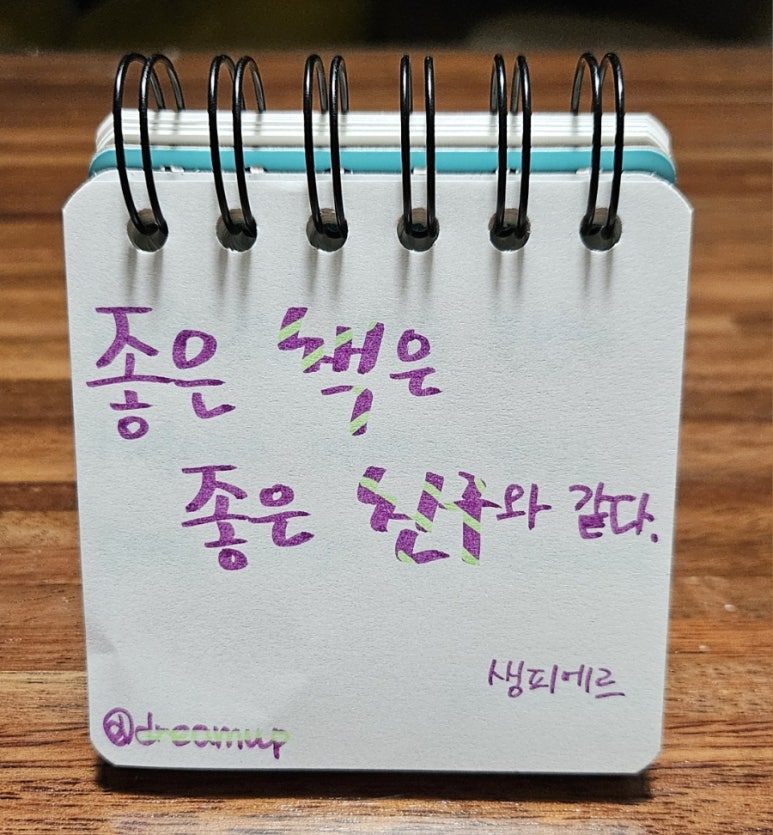 좋은 책은
좋은 친구와 같다.
생피에르
@dreamup